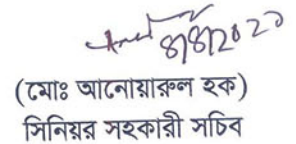 8/8/2020
(মোঃ আনোয়ারুল হক)
সিনিয়র সহকারী সচিব